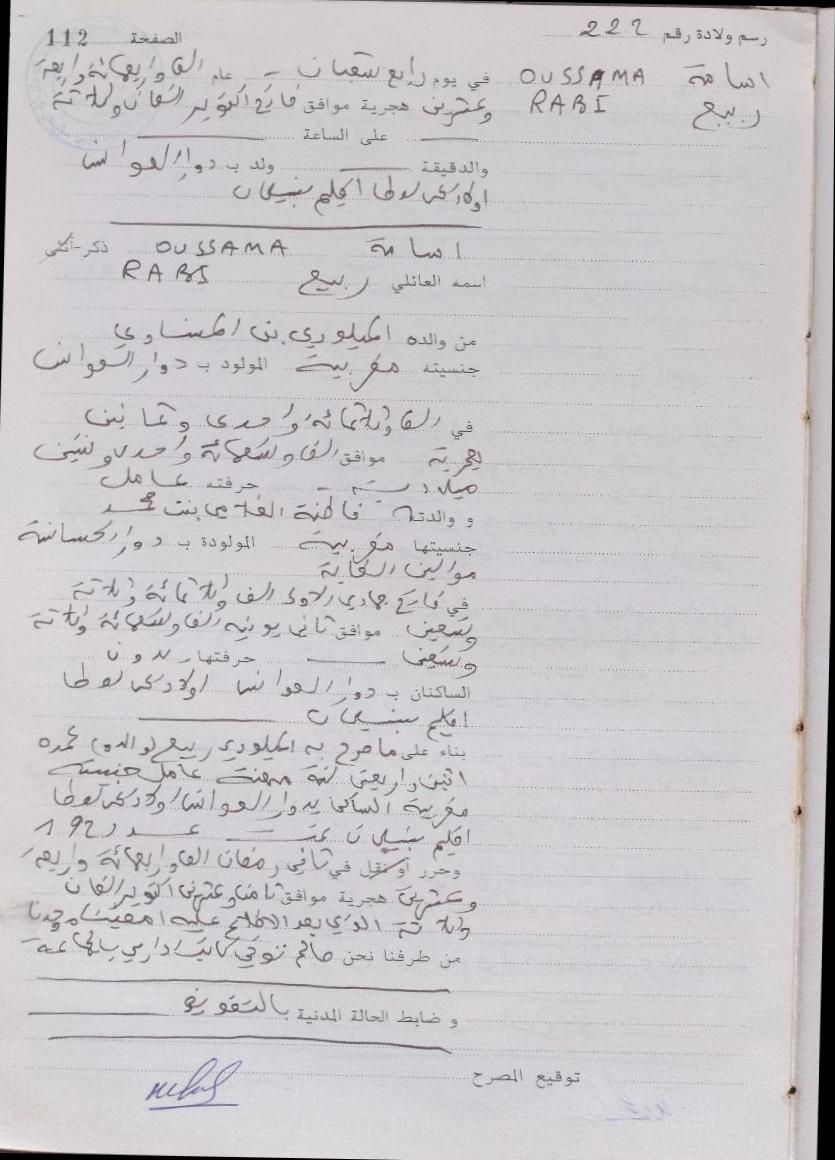 الصفحة 112
رسم ولادة رقم 222
اسامة OUSSAMA في يوم رابع شعبان عام الف واربعمائة واربعة
ربيع RABI وعشرين هجرية موافق فاتح اكتوبر الفان وثلاثة
على الساعة
والدقيقة ولد ب دوار العوانس
اولاد يحي لوطا اقليم بنسليمان
اسامة OUSSAMA ذكر-أنثى
اسمه العائلي ربيع RABI
من والده الميلودي بن
جنسيته مغربية المولود ب دوار العوانس
في الف وثلاثمائة واحدى وثمانين
هجرية موافق الف وتسعمائة واحدى وستين
ميلادية حرفته عامل
و والدته فاطنة بنت محمد
جنسيتها مغربية المولودة ب دوار الحساسنة
موالين الغابة
في فاتح جمادى الاولى الف وثلاثمائة وثلاثة
وتسعين موافق ثاني يونيه الف وتسعمائة وثلاثة
وسبعين حرفتها بدون
الساكنان ب دوار العوانس اولاد يحي لوطا
اقليم بنسليمان
بناء على ما صرح به الميلودي ربيع (والده) عمره
اثنين واربعين سنة مهنته عامل جنسيته
مغربية الساكن بدوار العوانس اولاد يحي لوطا
اقليم بنسليمان تحت عدد 192
وحرر أو نقل في ثاني رمضان الف واربعمائة واربعة
وعشرين هجرية موافق ثامن وعشرين اكتوبر الفان
وثلاثة الذي بعد الاطلاع عليه امضيناه وحدنا
من طرفنا نحن كاتب اداري بالجماعة
و ضابط الحالة المدنية بالتفويض
توقيع المصرح